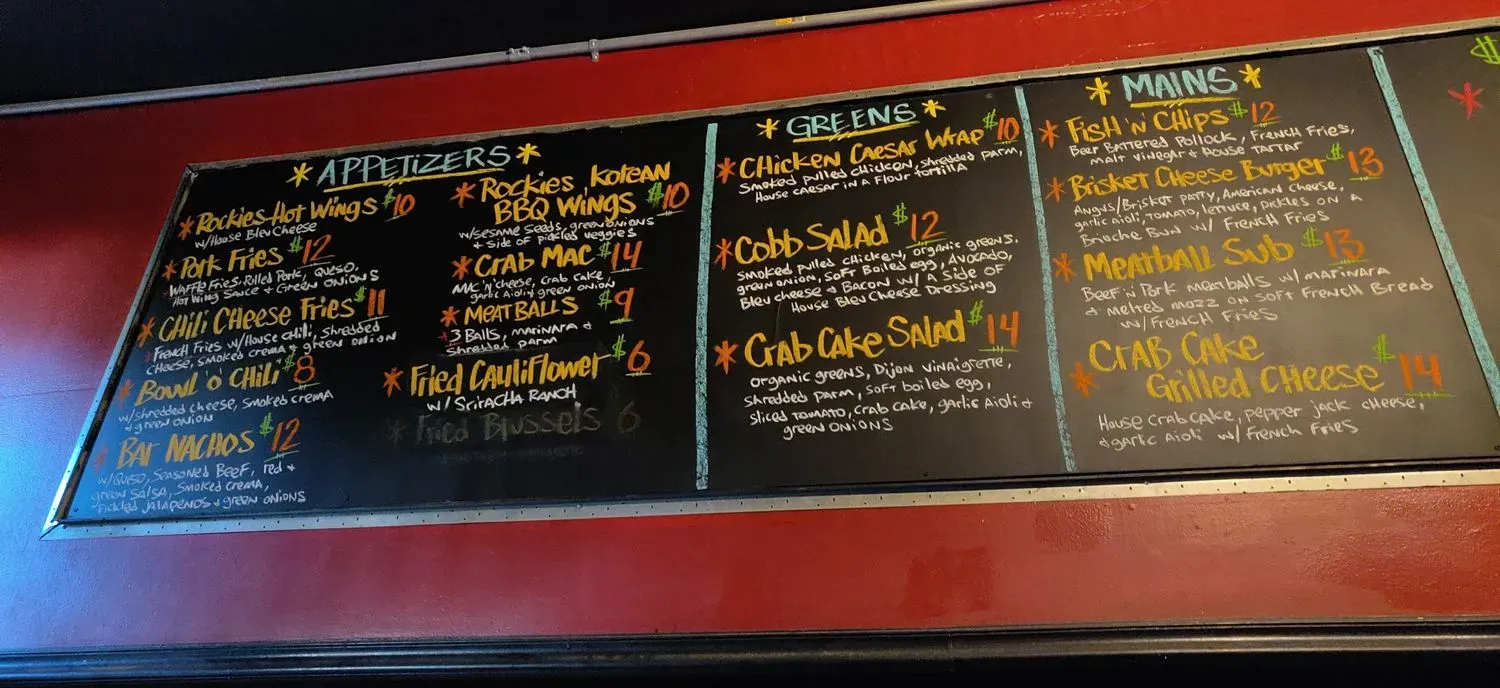 * APPETIZERS *
* Rockies Hot Wings $10
w/House Bleu Cheese
* Pork Fries $12
Waffle Fries, Pulled Pork, Queso,
Hot Wing Sauce + Green Onions
* Chili Cheese Fries $11
French Fries w/House Chili, shredded
Cheese, Smoked crema + green onion
* Bowl o' Chili $8
w/shredded cheese, Smoked crema
+ green onion
* Bar Nachos $12
w/Queso, Seasoned Beef, red +
green Salsa, Smoked crema,
Pickled Jalapeños + green onions
* Rockies Korean
BBQ Wings $10
w/sesame seeds, green onions
+ side of pickled veggies
* Crab Mac $14
Mac 'n' cheese, Crab cake,
garlic Aioli + green onion
* Meatballs $9
3 Balls, marinara +
shredded parm
* Fried Cauliflower $6
w/ Sriracha Ranch
* Fried Brussels 6
* GREENS *
* Chicken Caesar Wrap $10
Smoked pulled chicken, shredded parm,
House caesar in a flour tortilla
* Cobb Salad $12
Smoked pulled chicken, organic greens,
green onion, soft Boiled egg, Avocado,
Bleu cheese + Bacon w/ a side of
House Bleu Cheese Dressing
* Crab Cake Salad $14
organic greens, Dijon vinaigrette,
shredded parm, soft boiled egg,
sliced tomato, crab cake, garlic Aioli +
green onions
* MAINS *
* Fish 'n' Chips $12
Beer Battered Pollock, French Fries,
malt vinegar + House tartar
* Brisket Cheese Burger $13
Angus/Brisket patty, American Cheese,
garlic Aioli, tomato, lettuce, pickles on a
Brioche Bun w/ French Fries
* Meatball Sub $13
Beef 'n' Pork meatballs w/ marinara
+ melted mozz on soft French Bread
w/French Fries
* Crab Cake
Grilled Cheese $14
House crab cake, pepper jack cheese,
+ garlic Aioli w/ French Fries
$
*